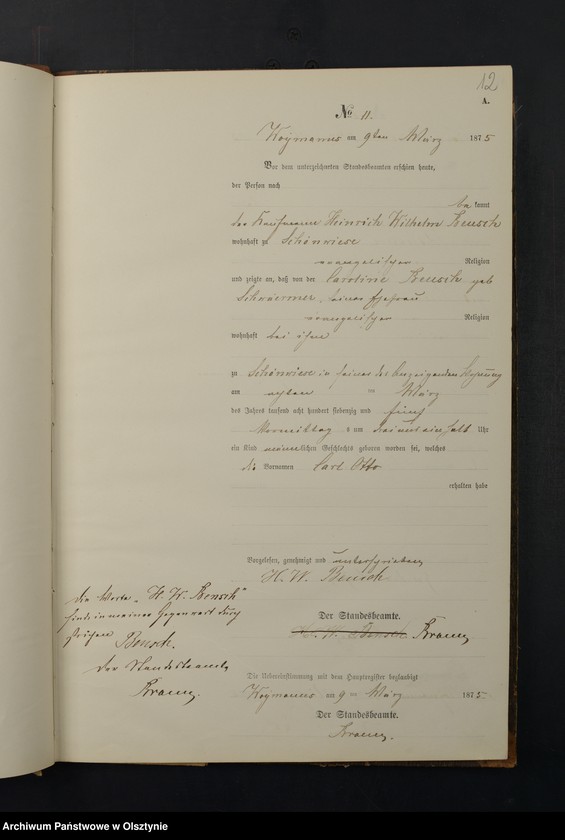 12
A.
No 11.
am 9ten März 1875
Vor dem unterzeichneten Standesbeamten erschien heute,
der Person nach
be kannt
der Kaufmann Heinrich Wilhelm Bensch
wohnhaft zu Schönwiese
evangelischer Religion
und zeigte an, daß von der Caroline Bensch geb
seiner Ehefrau
evangelischer Religion
wohnhaft bei ihm
zu Schönwiese in seiner des Anzeigenden Wohnung
am achten ten März
des Jahres tausend acht hundert siebenzig und fünf
Vormittag s um Uhr
ein Kind männlichen Geschlechts geboren worden sei, welches
die Vornamen Carl Otto
erhalten habe
Vorgelesen, genehmigt und unterschrieben
H. W. Bensch
Die Worte „H. W. Bensch"
sind in meiner Gegenwart durch
strichen Bensch.
Der Standesbeamte
Der Standesbeamte.
H. W. Bensch.
Die Uebereinstimmung mit dem Hauptregister beglaubigt
am 9 ten März 1875
Der Standesbeamte.
Archiwum Państwowe w Olsztynie